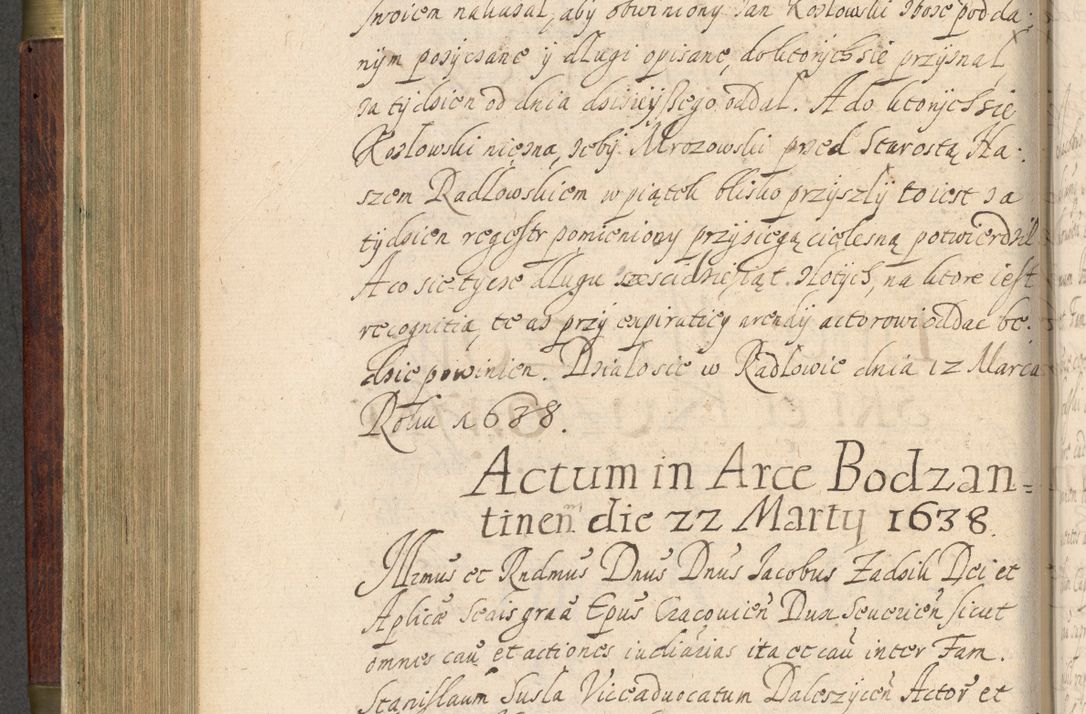 swoiem nakazał, aby obwiniony Jan Kozłowski zboże podda-
nym pożyczane y długi opisane, do ktorych sie przyznał
za tydzień od dnia dzisieyszego oddał. A do ktorych sie
Kozłowski nie zna, żeby Mrozowski przed Starostą Na-
szem Radłowskiem w piątek blisko przyszły to iest za
tydzien regestr pomieniony przysięgą cielesną potwierdził
A co sie tycze długu sześcidziesiąt złotych, na ktore iest
recognitia, te as przy expiratiey arendy actorowi oddac be-
dzie powinien. Działo sie w Radłowie dnia 12 Marca
Roku 1638.
Actum in Arce Bodzan=
tinen die 22 Martij 1638.
Illmus et Rndmus Dnus Dnus Jacobus Zadzik Dei et
Aplicæ Sedis graa Epus Cracovien Dux Severien sicut
omnes cau et actiones iudiarias ita et cau inter Fam.
Stanislaum Susła Viceadvocatum Daleszycen Actor et